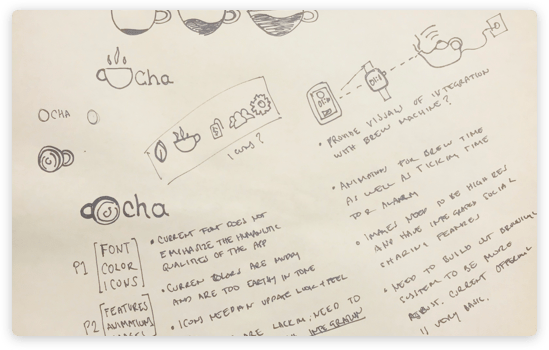 Ocha
OCHA
ICONS?
Ocha
P1
FONT
COLOR
ICONS
• CURRENT FONT DOES NOT
EMPHASIZE THE HUMANISTIC
QUALITIES OF THE APP
• CURRENT COLORS ARE MUDDY
AND ARE TOO EARTHY IN TONE
• ICONS NEED AN UPDATE LOOK + FEEL
P2
FEATURES
ANIMATION
ARE LACKING. NEED TO
INTEGRATION
• PROVIDE VISUAL OF INTEGRATION
WITH BREW MACHINE?
• ANIMATION FOR BREW TIME
AS WELL AS TICKING TIME
FOR ALARM
• IMAGES NEED TO BE HIGH RES
AND HAVE INTEGRATED SOCIAL
SHARING FEATURES
• NEED TO BUILD OUT
SYSTEM TO BE MORE
ROBUST. CURRENT OFFERING
IS VERY BASIC.